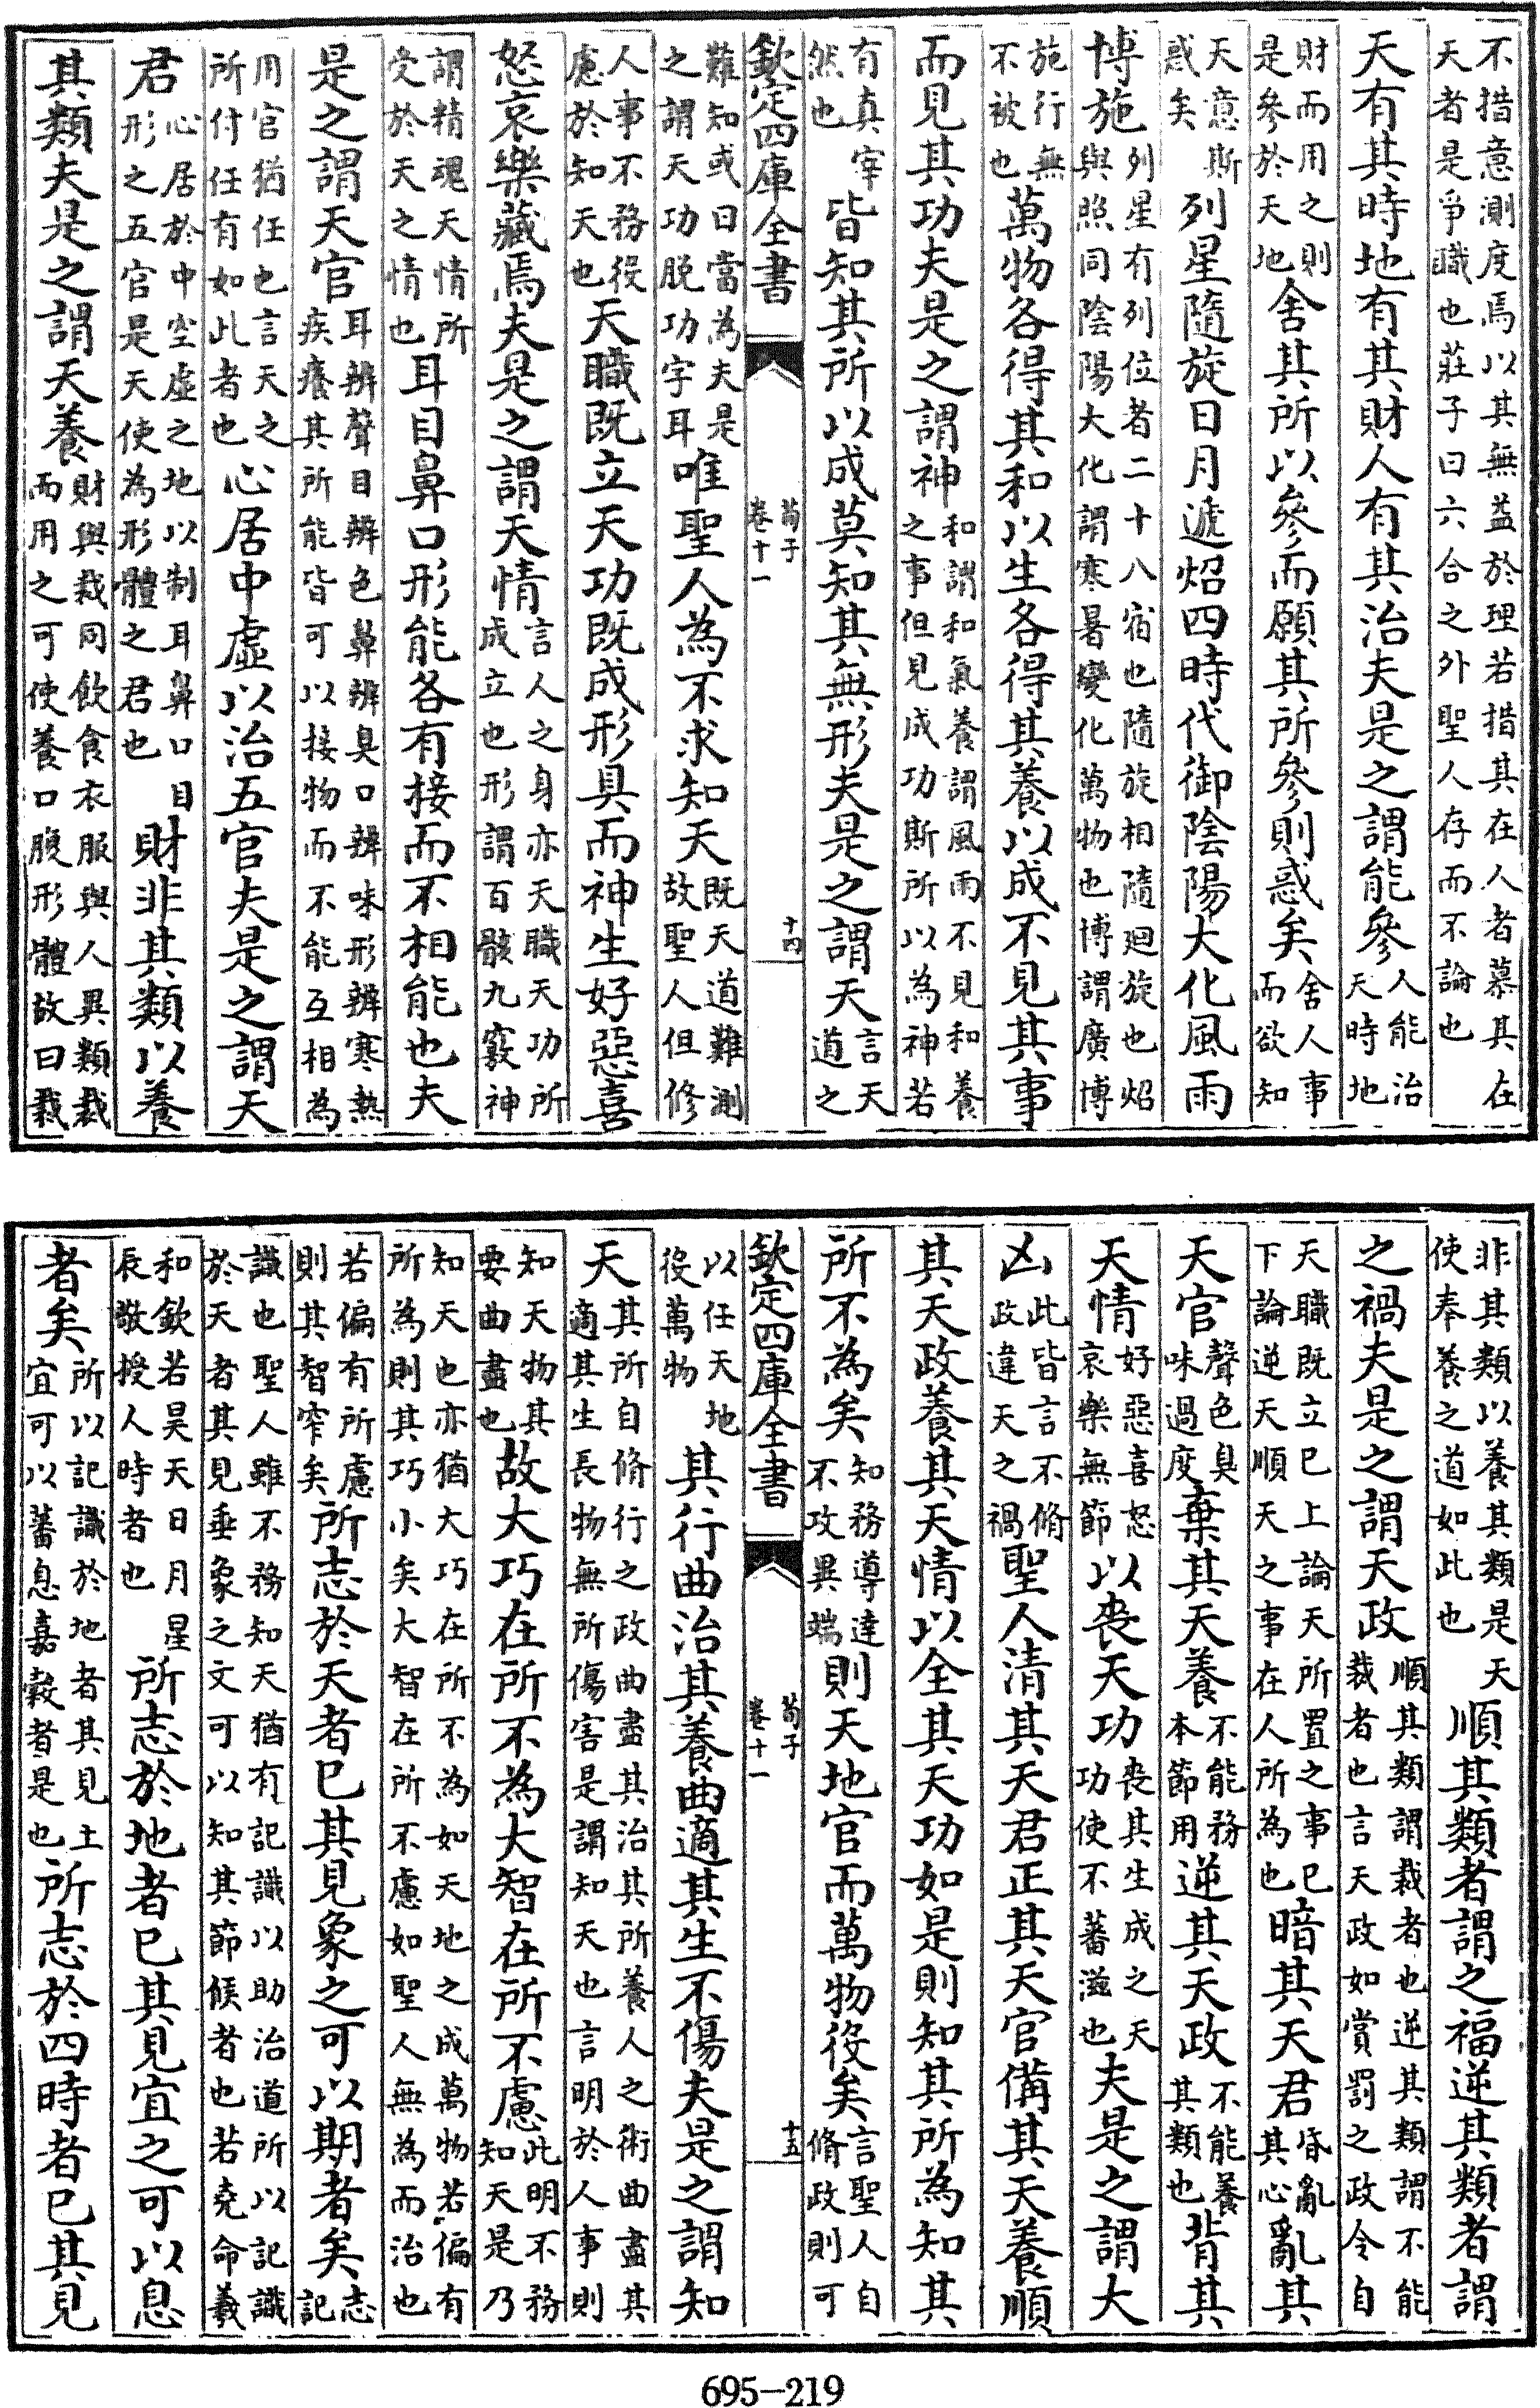 不措意測度焉以其無益於理若措其在人者慕其在
天者是爭職也莊子曰六合之外聖人存而不論也
天有其時地有其財人有其治夫是之謂能參人能治天時地
財而用之則是參於天地舍其所以參而願其所參則惑矣舍人事而欲知
天意斯惑矣列星隨旋日月遞炤四時代御陰陽大化風雨
博施列星有列位者二十八宿也隨旋相隨廻旋也炤與照同陰陽大化謂寒暑變化萬物也博謂廣博
施行無不被也萬物各得其和以生各得其養以成不見其事
而見其功夫是之謂神和謂和氣養謂風雨不見和養之事但見成功斯所以為神若
有真宰然也皆知其所以成莫知其無形夫是之謂天言天道之
欽定四庫全書 荀子卷十一 十四
難知或曰當為夫是之謂天功脱功字耳唯聖人為不求知天既天道難測故聖人但修
人事不務役慮於知天也天職既立天功既成形具而神生好惡喜
怒哀樂藏焉夫是之謂天情言人之身亦天職天功所成立也形謂百骸九竅神
謂精魂天情所受於天之情也耳目鼻口形能各有接而不相能也夫
是之謂天官耳辨聲目辨色鼻辨臭口辨味形辨寒熱疾癢其所能皆可以接物而不能互相為
用官猶任也言天之所付任有如此者也心居中虛以治五官夫是之謂天
君心居於中空虛之地以制耳鼻口目形之五官是天使為形體之君也財非其類以養
其類夫是之謂天養財與裁同飲食衣服與人異類裁而用之可使養口腹形體故曰裁
非其類以養其類是天使奉養之道如此也順其類者謂之福逆其類者謂
之禍夫是之謂天政順其類謂裁者也逆其類謂不能裁者也言天政如賞罰之政令自
天職既立已上論天所置之事已下論逆天順天之事在人所為也暗其天君昏亂其心亂其
天官聲色臭味過度棄其天養不能務本節用逆其天政不能養其類也背其
天情好惡喜怒哀樂無節以喪天功喪其生成之天功使不蕃滋也夫是之謂大
凶此皆言不脩政違天之禍聖人清其天君正其天官備其天養順
其天政養其天情以全其天功如是則知其所為知其
所不為矣知務導達不攻異端則天地官而萬物役矣言聖人自脩政則可
欽定四庫全書 荀子卷十一 十五
以任天地役萬物其行曲治其養曲適其生不傷夫是之謂知
天其所自脩行之政曲盡其治其所養人之術曲盡其適其生長物無所傷害是謂知天也言明於人事則
知天物其要曲盡也故大巧在所不為大智在所不慮此明不務知天是乃
知天也亦猶大巧在所不為如天地之成萬物若偏有所為則其巧小矣大智在所不慮如聖人無為而治也
若偏有所慮則其智窄矣所志於天者已其見象之可以期者矣志記
識也聖人雖不務知天猶有記識以助治道所以記識於天者其見垂象之文可以知其節候者也若堯命羲
和欽若昊天日月星辰敬授人時者也所志於地者已其見宜之可以息
者矣所以記識於地者其見土宜可以蕃息嘉穀者是也所志於四時者已其見
695-219